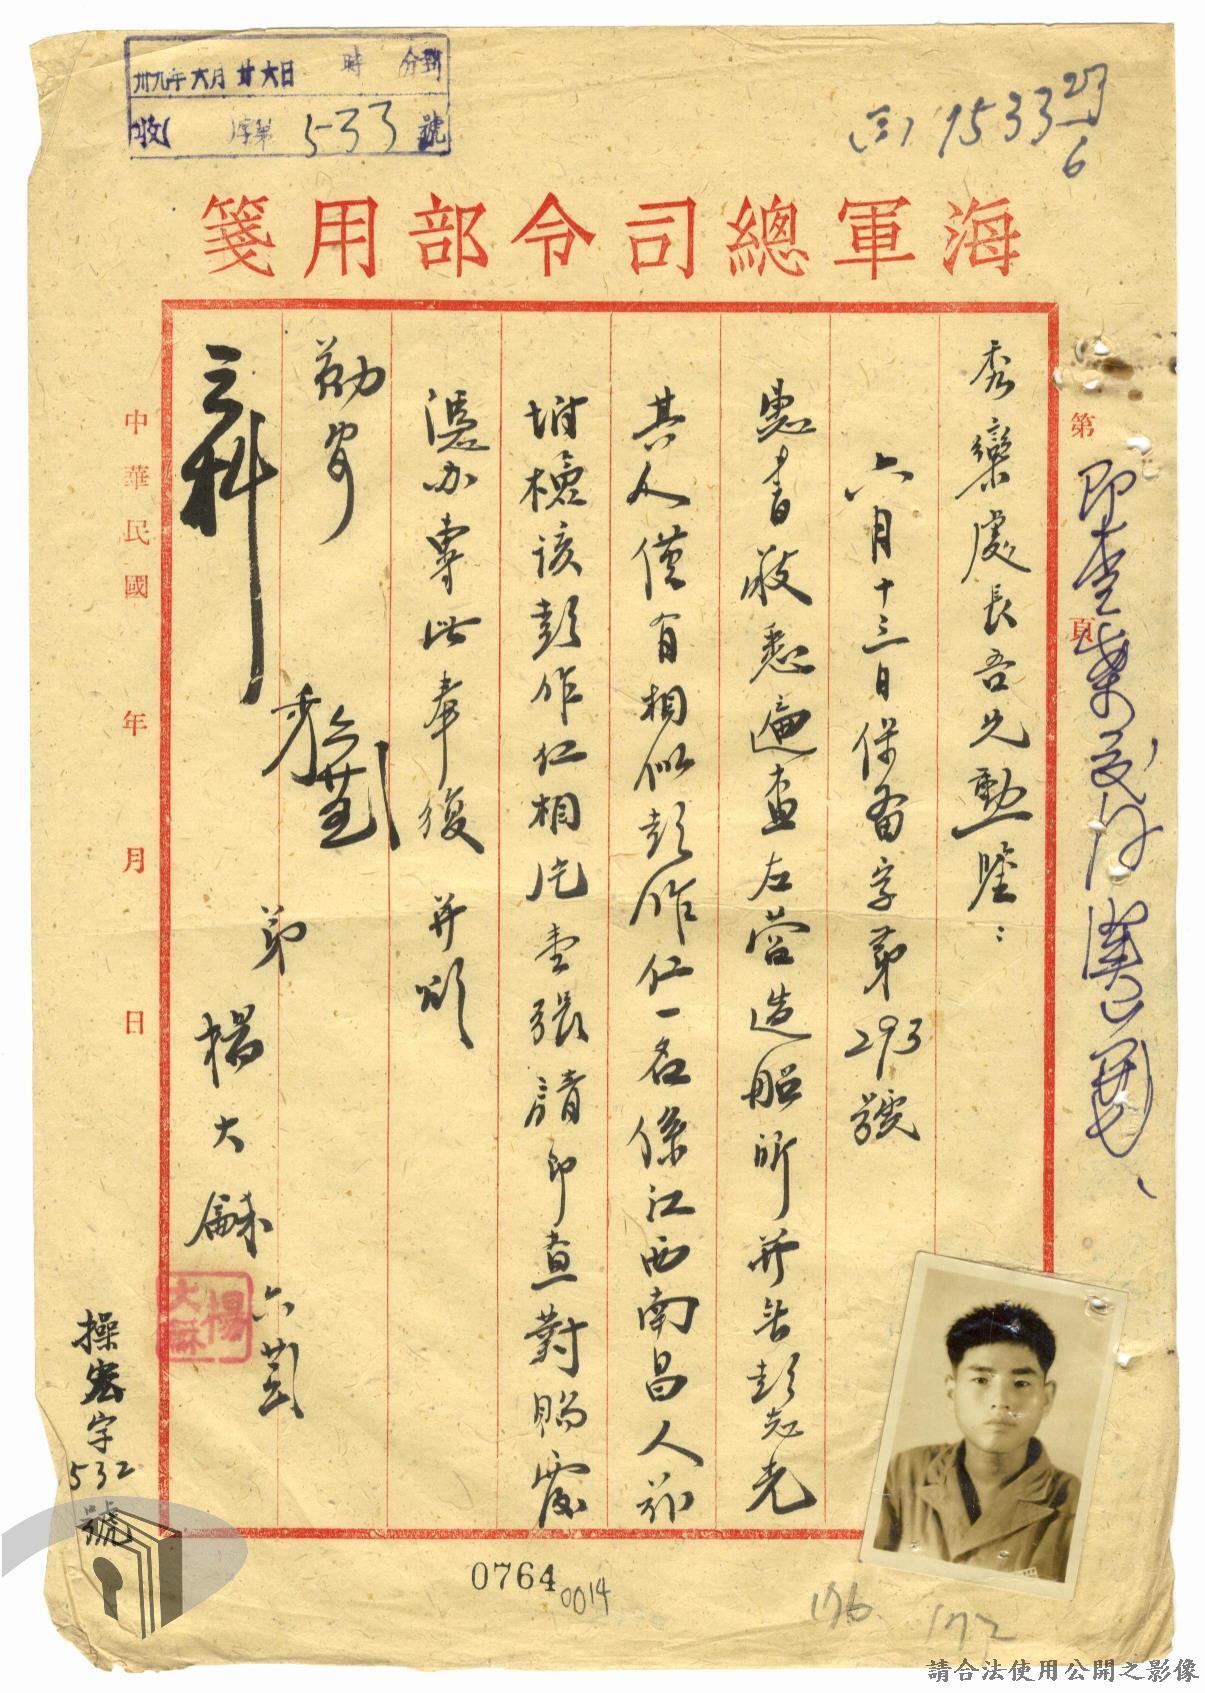 卅九年六月廿六日 時 分到
收 字第 533 號
1533 27/6
海軍總司令部用箋
第 頁
秀欒處長吾兄勳鑒：
六月十三日保君字第293號
惠書敬悉遍查左營造船所并無彭志光
其人僅有相似彭作仁一名係江西南昌人茲
坿檢該彭作仁相片壹張請即查對賜覆
憑办專此奉復 并頌
勛安
弟 楊大龢 六
楊大龢
三科
中華民國 年 月 日
操宏字532號
0764
0014
176
172
請合法使用公開之影像